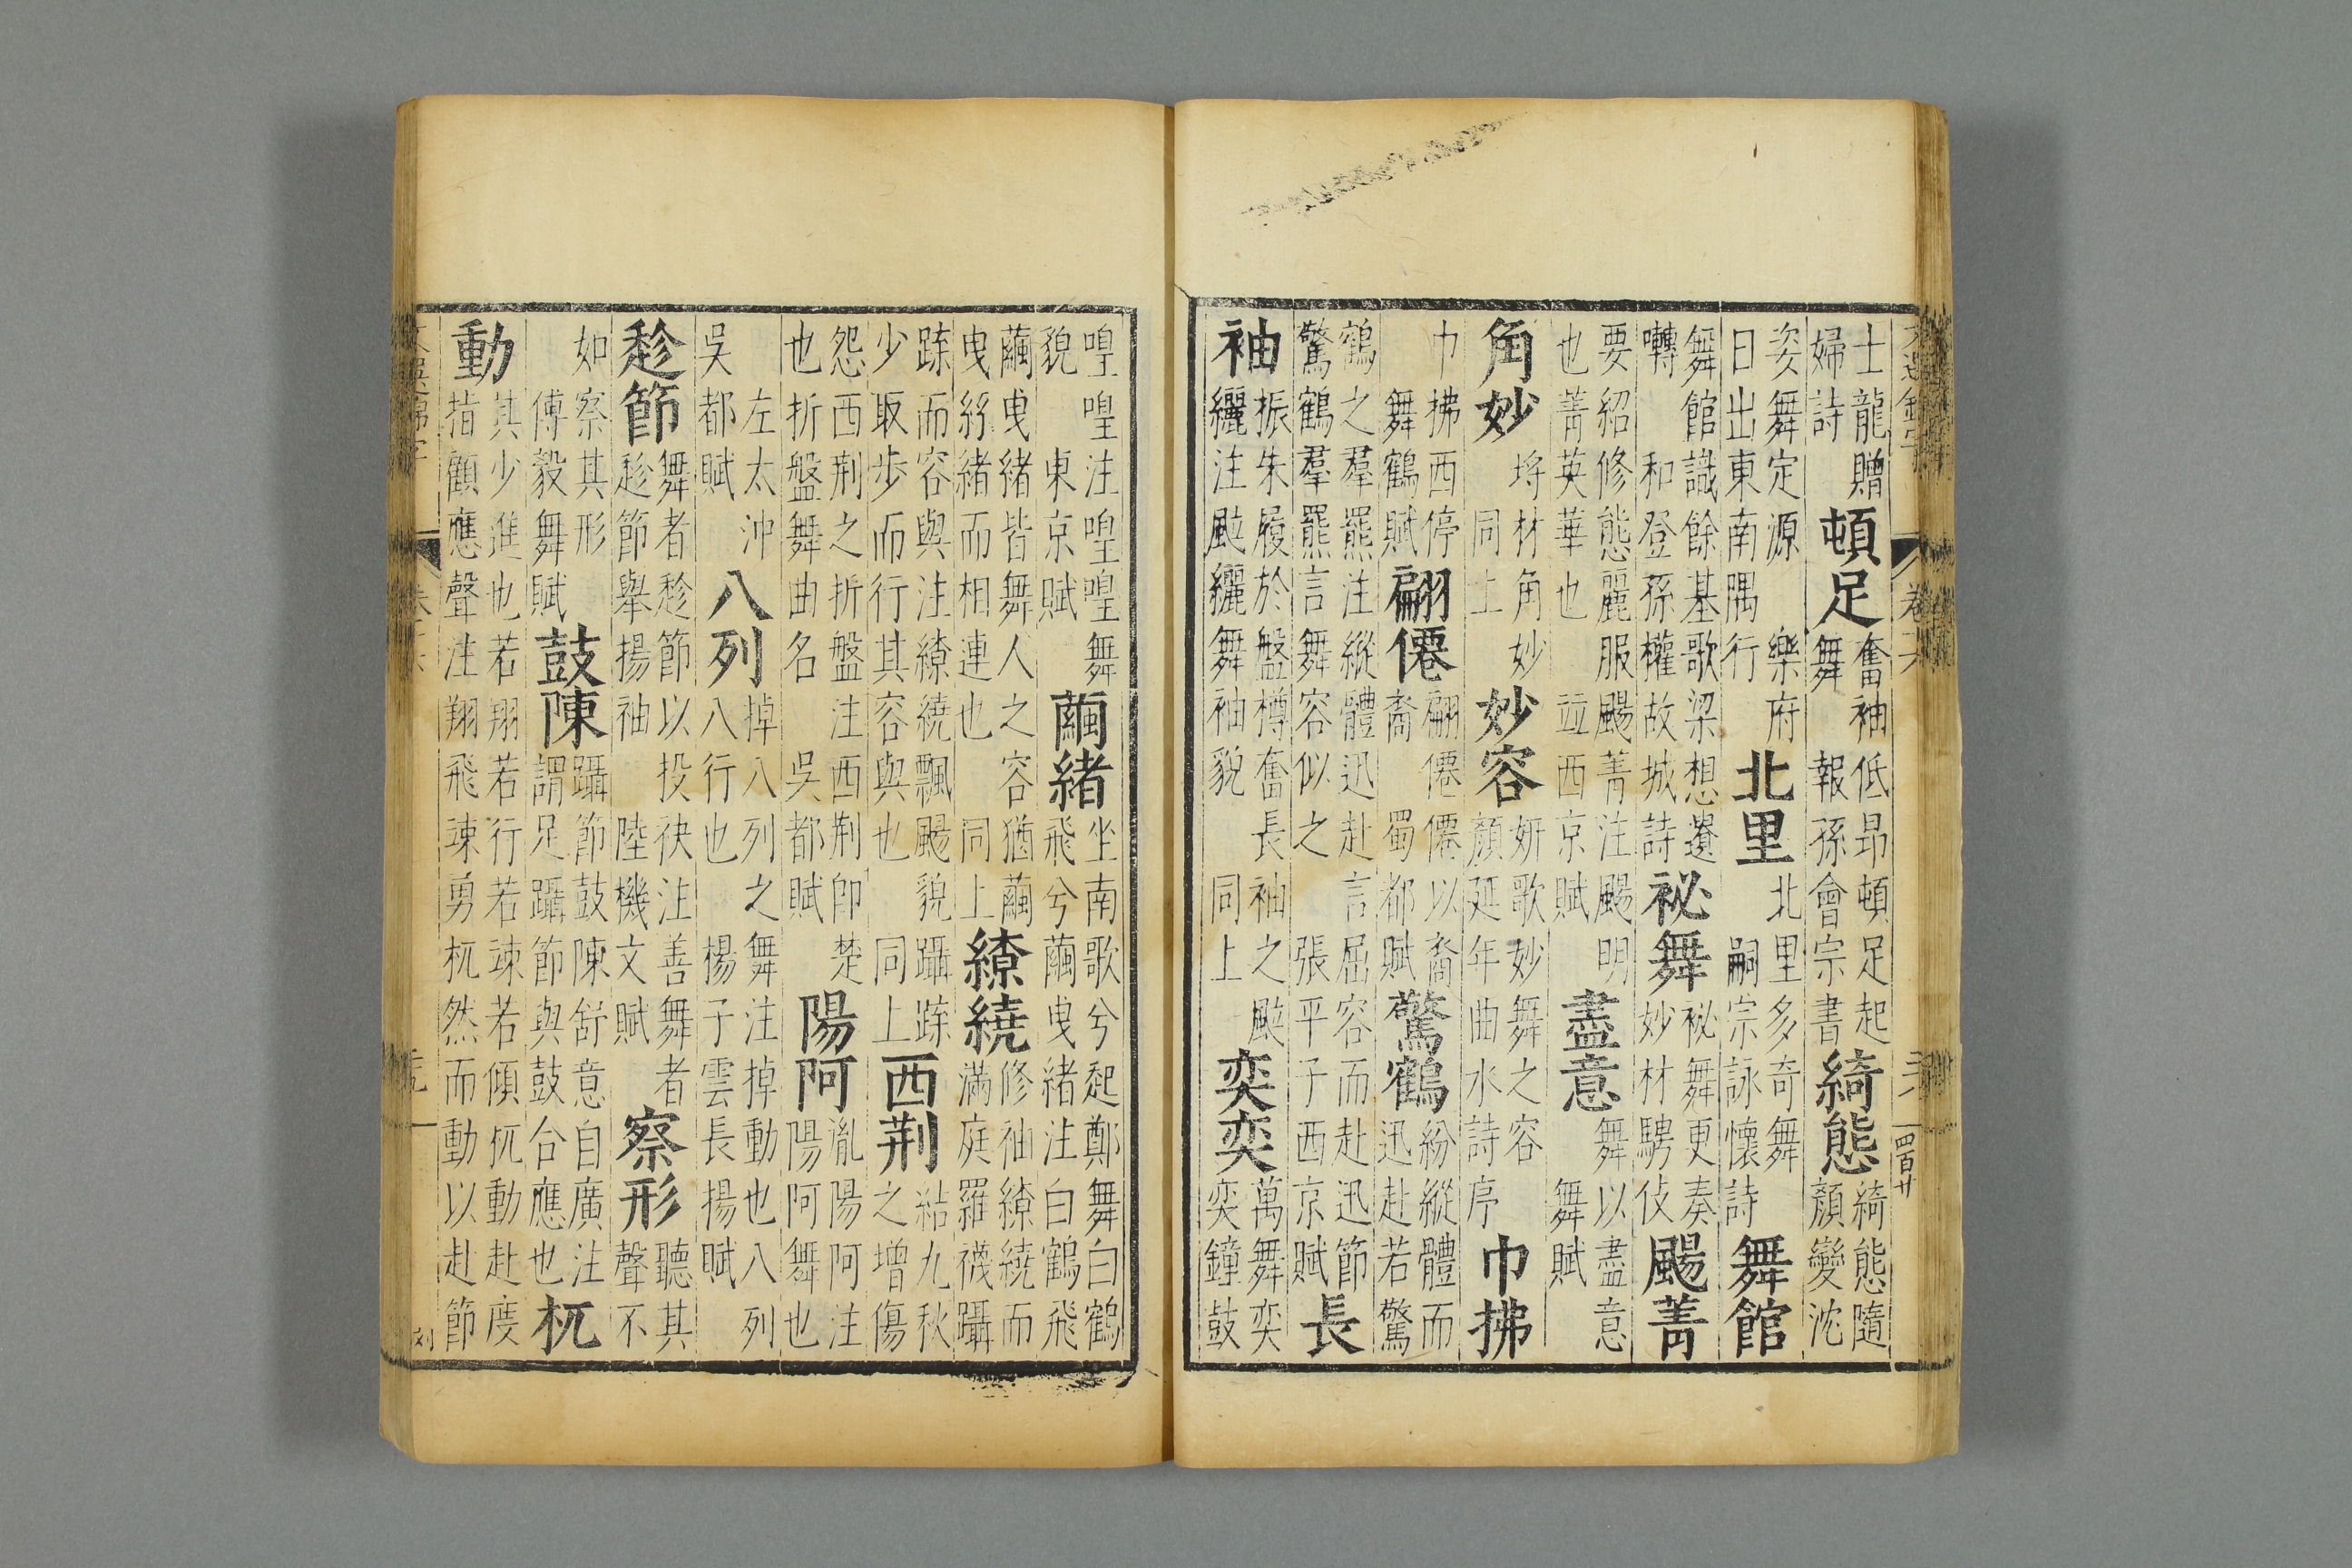 士龍贈
婦詩
頓足
奮袖低昂頓足起
舞 報孫會宗書
綺態
綺態隨
顏變沈
姿舞定源 樂府
日出東南隅行
北里
北里多奇舞
嗣宗詠懷詩
舞館
舞館識餘基歌梁想遺
囀 和登孫權故城詩
祕舞
祕舞更奏
妙材騁伎
颺菁
要紹修態麗服颺菁注颺明
也菁英華也 竝西京賦
盡意
舞以盡意
舞賦
角妙
埓材角妙
同上
妙容
妍歌妙舞之容
顏延年曲水詩序
巾拂
巾拂西停
舞鶴賦
翩僊
翩僊僊以裔
裔 蜀都賦
驚鶴
紛縱體而
迅赴若驚
鶴之羣羆注縱體迅赴言屈容而赴迅節
驚鶴羣羆言舞容似之 張平子西京賦
長
袖
振朱履於盤樽奮長袖之颯
纚注颯纚舞袖貌 同上
奕奕
萬舞奕
奕鐘鼓
卷六
四百廿
喤喤注喤喤舞
貌 東京賦
繭緒
坐南歌兮起鄭舞白鶴
飛兮繭曳緒注白鶴飛
繭曳緒皆舞人之容猶繭
曳絲緒而相連也 同上
繚繞
修袖繚繞而
滿庭羅襪躡
蹀而容與注繚繞飄颺貌躡蹀
少取步而行其容與也 同上
西荆
結九秋
之增傷
怨西荆之折盤注西荆卽楚
也折盤舞曲名 吳都賦
陽阿
胤陽阿注
陽阿舞也
左太沖
吳都賦
八列
掉八列之舞注掉動也八列
八行也 楊子雲長揚賦
趁節
舞者趁節以投袂注善舞者
趁節舉揚袖 陸機文賦
察形
聽其
聲不
如察其形
傅毅舞賦
鼓陳
躡節鼓陳舒意自廣注
謂足躡節與鼓合應也
杌
動
其少進也若翔若行若竦若傾杌動赴度
指顧應聲注翔飛竦勇杌然而動以赴節